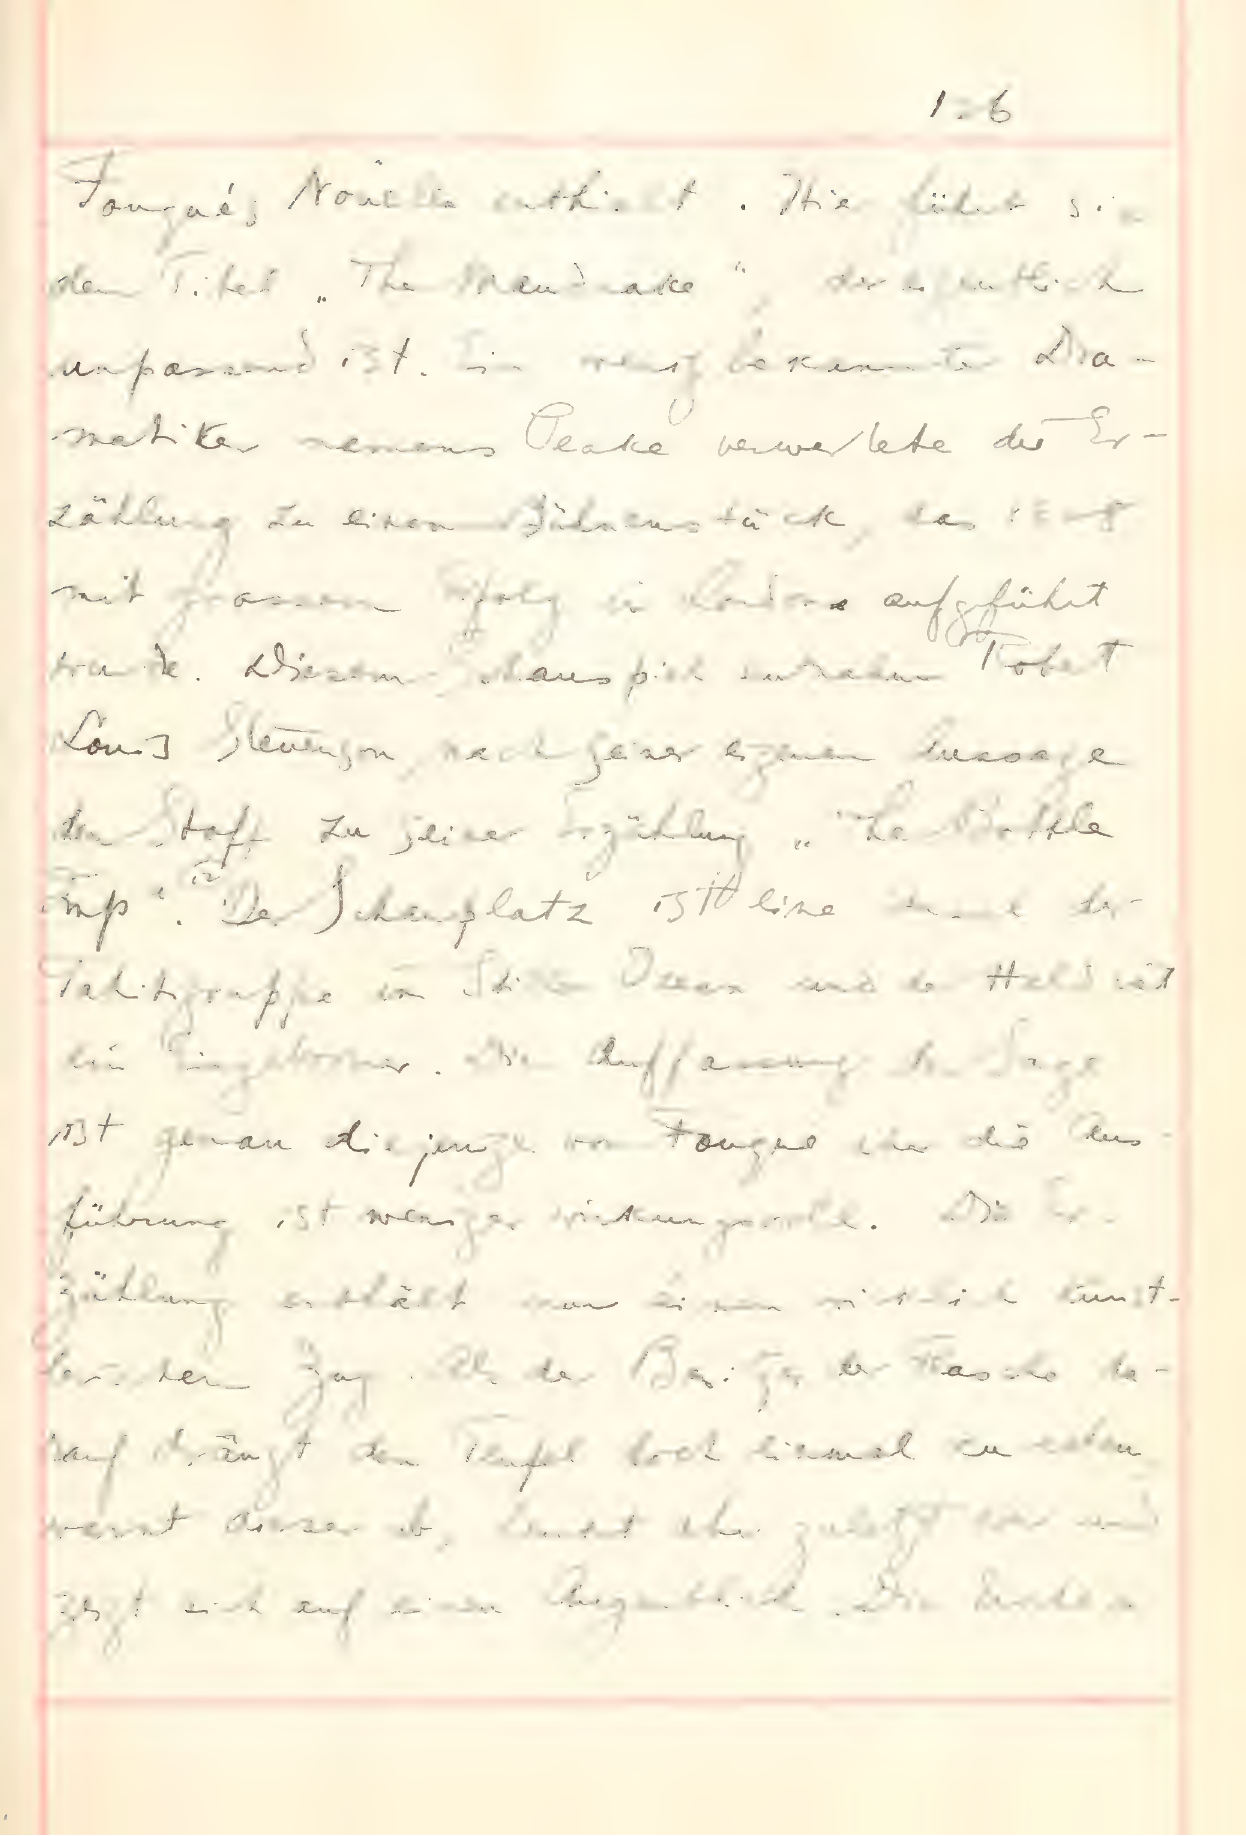 126
Fouqué's Novelle enthielt. Hier führt sie
den Titel „The Mandrake", der eigentlich
unpassend ist. Ein wenig bekannter Dra-
matiker namens Peake verwertete die Er-
zählung zu einem Bühnenstück, das
mit grossem Erfolg in London aufgeführt
wurde. Diesem Schauspiel entnahm Robert
Louis Stevenson, nach seiner eigenen Aussage
den Stoff zu seiner Erzählung „The Bottle
Imp". Der Schauplatz ist eine Insel der
Tahitigruppe im Stillen Ozean und der Held ist
ein Eingeborner. Die Auffassung der Sage
ist genau diejenige von Fouqué die Aus-
führung ist weniger wirkungsvoll. Die Er-
zählung enthält nur einen wirklich künst-
lerischen Zug. Als der Besitzer der Flasche da-
rauf drängt den Teufel doch einmal zu sehen
weist dieser ab, aber zuletzt ein und
zeigt sich auf einen Augenblick. Die